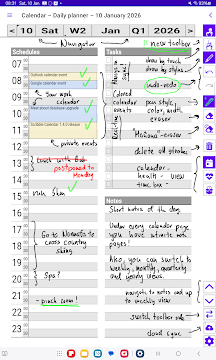 08:31 Sat, 10 Jan
Calendar – Daily planner – 10 January 2026
< 10 Sat W2 Jan Q1 2026 >
Navigator
new toolbar
Schedules
Tasks
07
08
09
10
11
12
13
14
15
16
17
18
19
20
21
22
23
Outlook calendar event
Google calendar event
Your work calendar
private events
lunch with Bob
postponed to Monday
run 5km
Go to Normafa to cross country skiing
Spa?
- push cvcn!
draw by touch
draw by stylus
undo-redo
Colored
calendar pen style,
events color, width
eraser
Marking-eraser
delete all strokes
calendar
health - view
time box -
Notes
Short notes of the day
Under every calendar page
you have infinite note
pages!
Also, you can switch to
weekly, monthly, quarterly
and yearly views.
navigate to notes and up
to weekly view
switch toolbar side
cloud sync